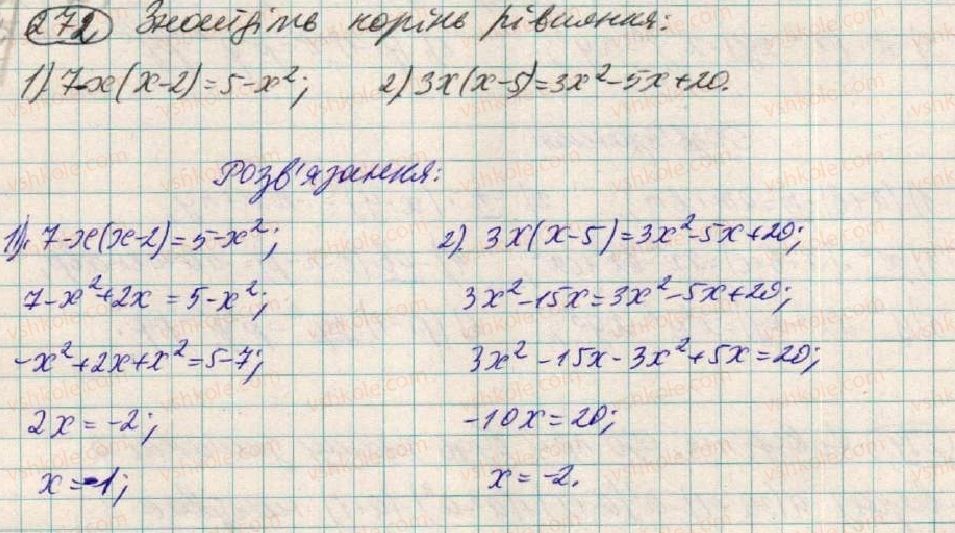 272 Знайдіть корінь рівняння:
1) 7-x(x-2)=5-x²; 2) 3x(x-5)=3x²-5x+20.
Розв'язання:
1). 7-x(x-2)=5-x²;
7-x²+2x=5-x²;
-x²+2x+x²=5-7;
2x=-2;
x=-1;
2). 3x(x-5)=3x²-5x+20;
3x²-15x=3x²-5x+20;
3x²-15x-3x²+5x=20;
-10x=20;
x=-2.